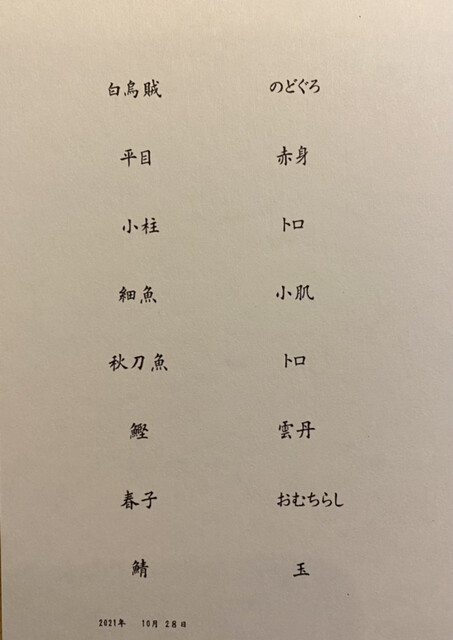 白烏賊
平目
小柱
細魚
秋刀魚
鰹
春子
鯖
のどぐろ
赤身
トロ
小肌
トロ
雲丹
おむちらし
玉
2021年 10月 28日